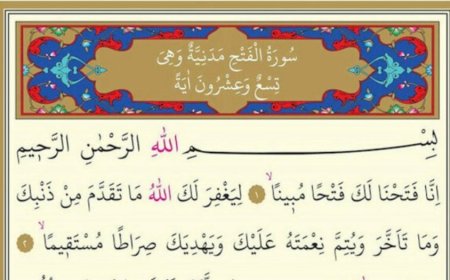 سُورَةُ الْفَتْحِ مَدَنِيَّةٌ وَهِيَ
تِسْعٌ وَعِشْرُونَ اٰيَةً
بِسْمِ اللهِ الرَّحْمٰنِ الرَّحِيمِ
اِنَّا فَتَحْنَا لَكَ فَتْحًا مُبِينًاۙ ﴿١﴾ لِيَغْفِرَ لَكَ اللهُ مَا تَقَدَّمَ مِنْ ذَنْبِكَ
وَمَا تَاَخَّرَ وَيُتِمَّ نِعْمَتَهُ عَلَيْكَ وَيَهْدِيَكَ صِرَاطًا مُسْتَقِيمًاۙ ﴿٢﴾